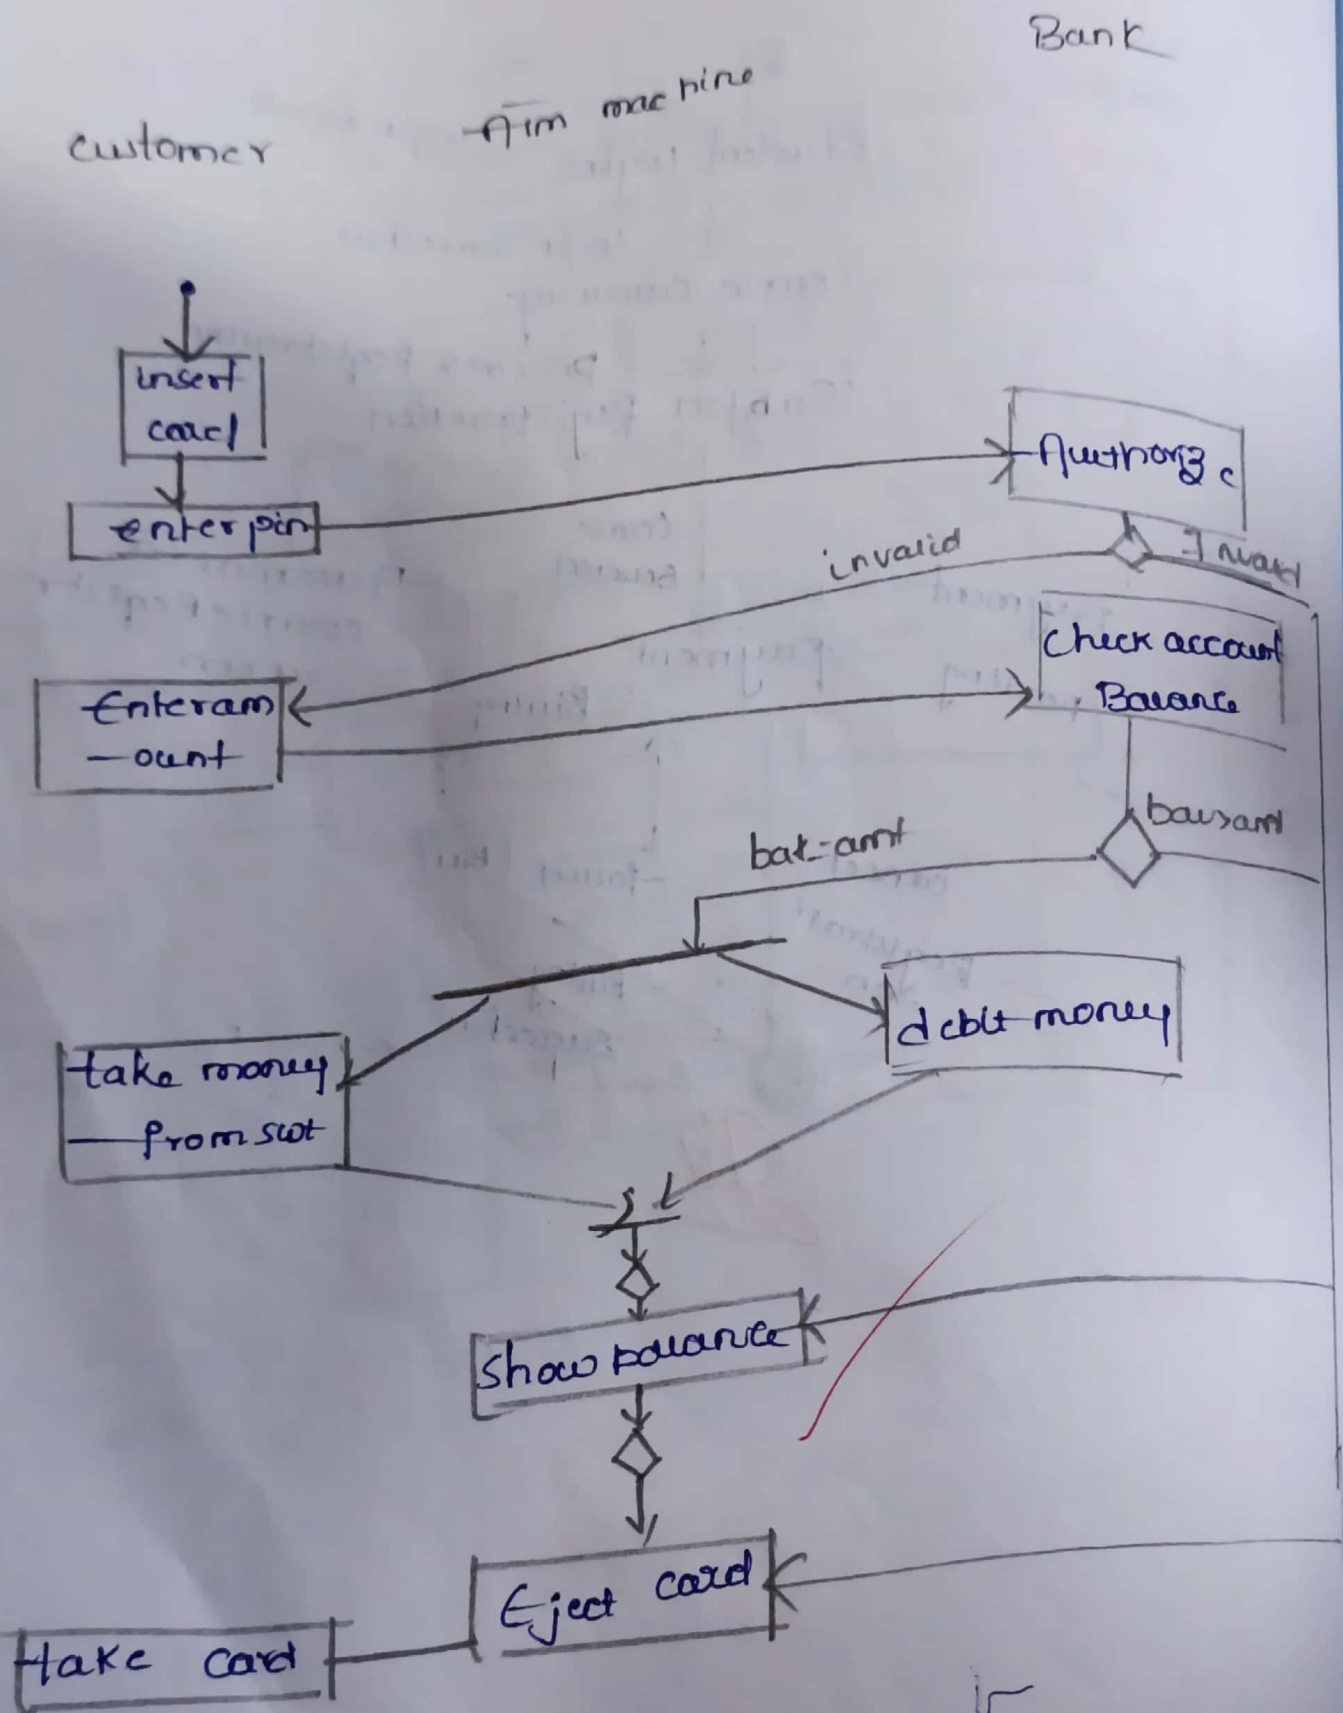 Bank
Atm machine
customer
insert
card
enter pin
Authorize
invalid
Invalid
Check account
Balance
Enteram
-ount
bal>amt
debit money
take money
from slot
Show balance
Eject card
take card